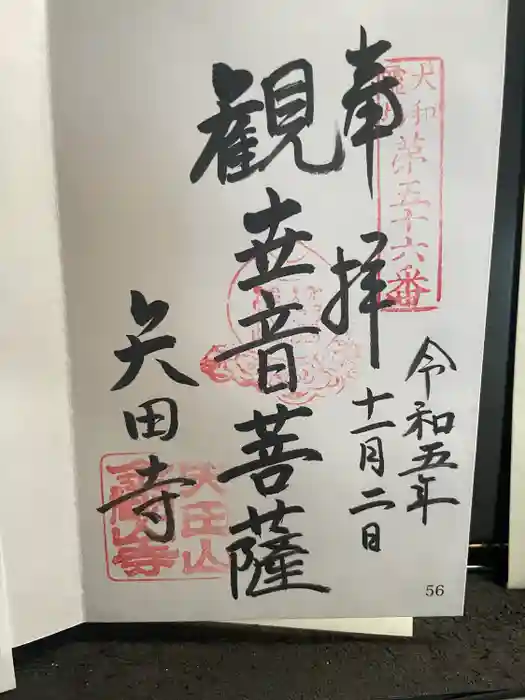 大和
第五十六番
奉拝
令和五年
十一月二日
観世音菩薩
矢田寺
矢田山
金剛山寺
56